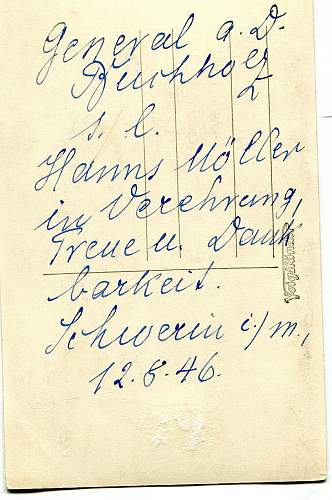 General a. D.
Buchholz
s. l.
Hanns Möller
in Verehrung,
Treue u. Dank
barkeit.
Schwerin i/m.,
12.8.46.
Voigtländer